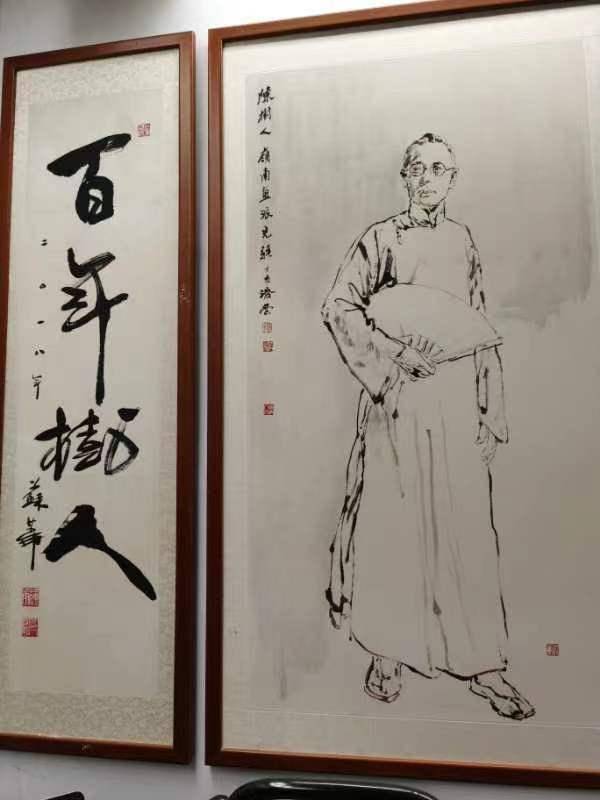 百年樹人
二〇一八年
蘇華
陳樹人 嶺南畫派先驅